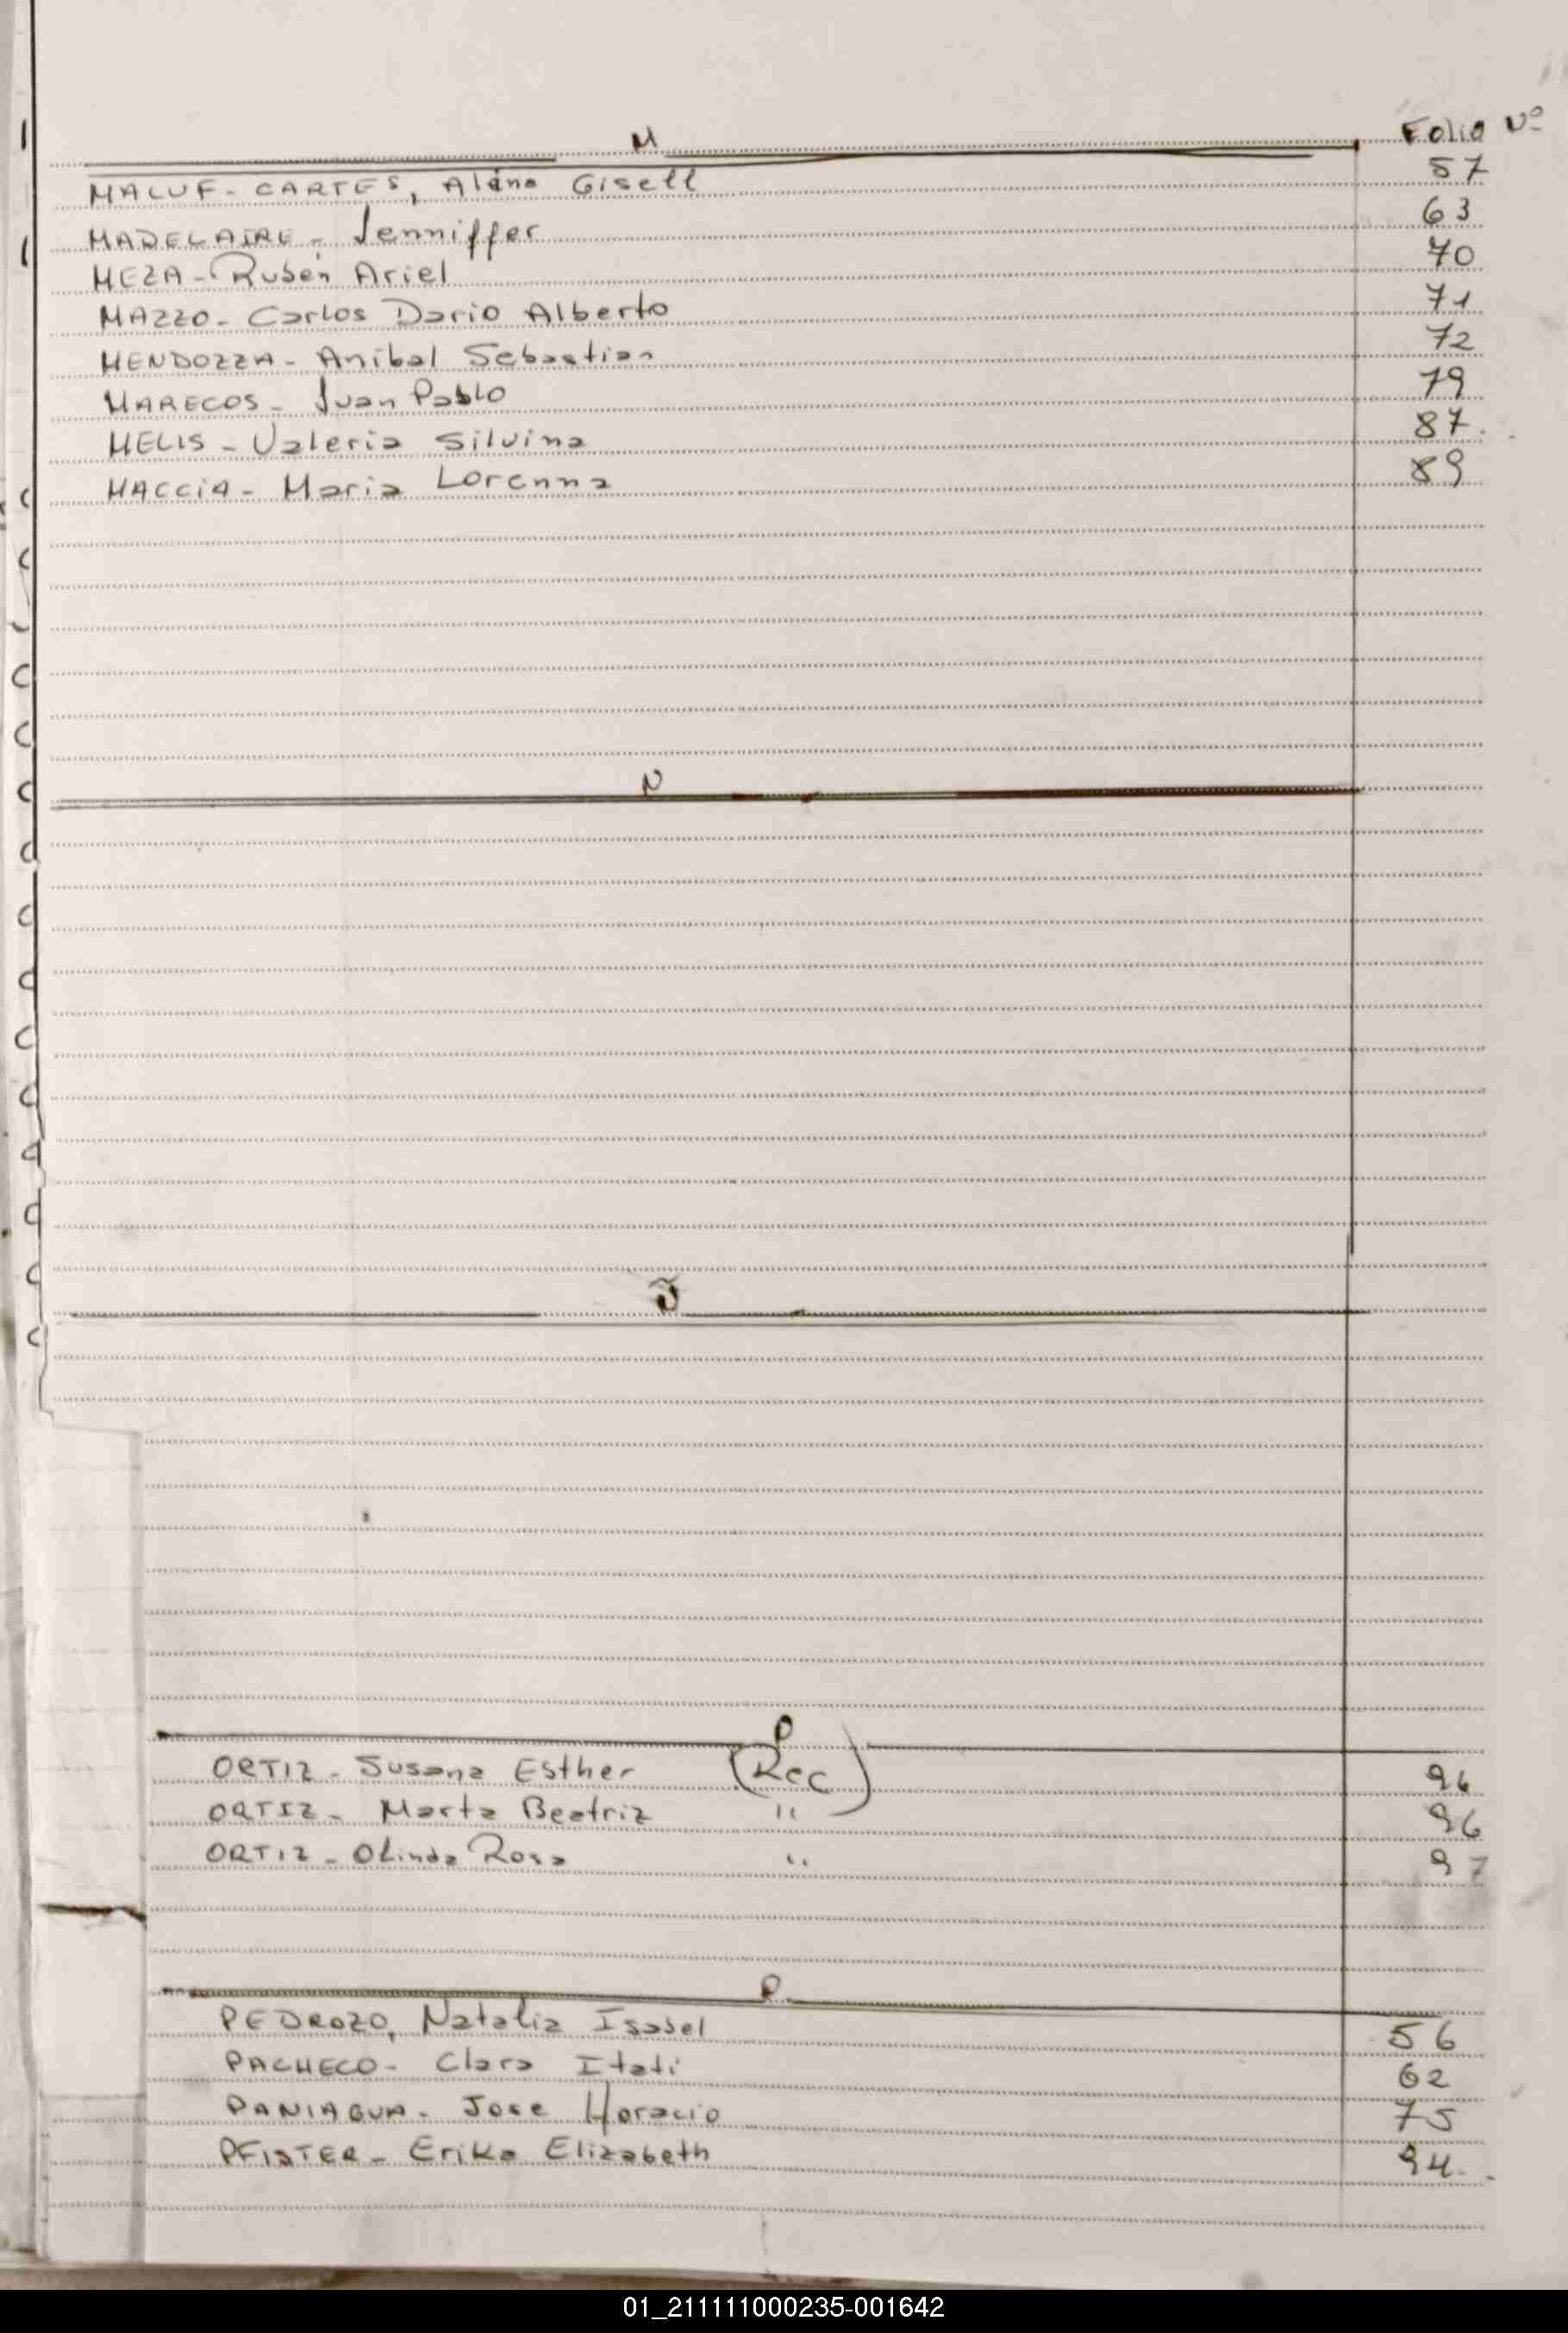 M Folio Nº
MALUF - CARTES, Aldno Gisell 57
MADELAIRE - Jenniffer 63
MEZA - Rubén Ariel 70
MAZZO - Carlos Dario Alberto 71
MENDOZZA - Anibal Sebastian 72
MARECOS - Juan Pablo 79
MELIS - Valeria Silvina 87.
MACCIA - Maria Lorenna 89
N
Ñ
O
ORTIZ - Susana Esther (Rec) 96
ORTIZ - Marta Beatriz " 96
ORTIZ - Olinda Rosa " 97
P
PEDROZO, Natalia Isabel 56
PACHECO - Clara Itati 62
PANIAGUA - Jose Horacio 75
PFISTER - Erika Elizabeth 94.
01_211111000235-001642